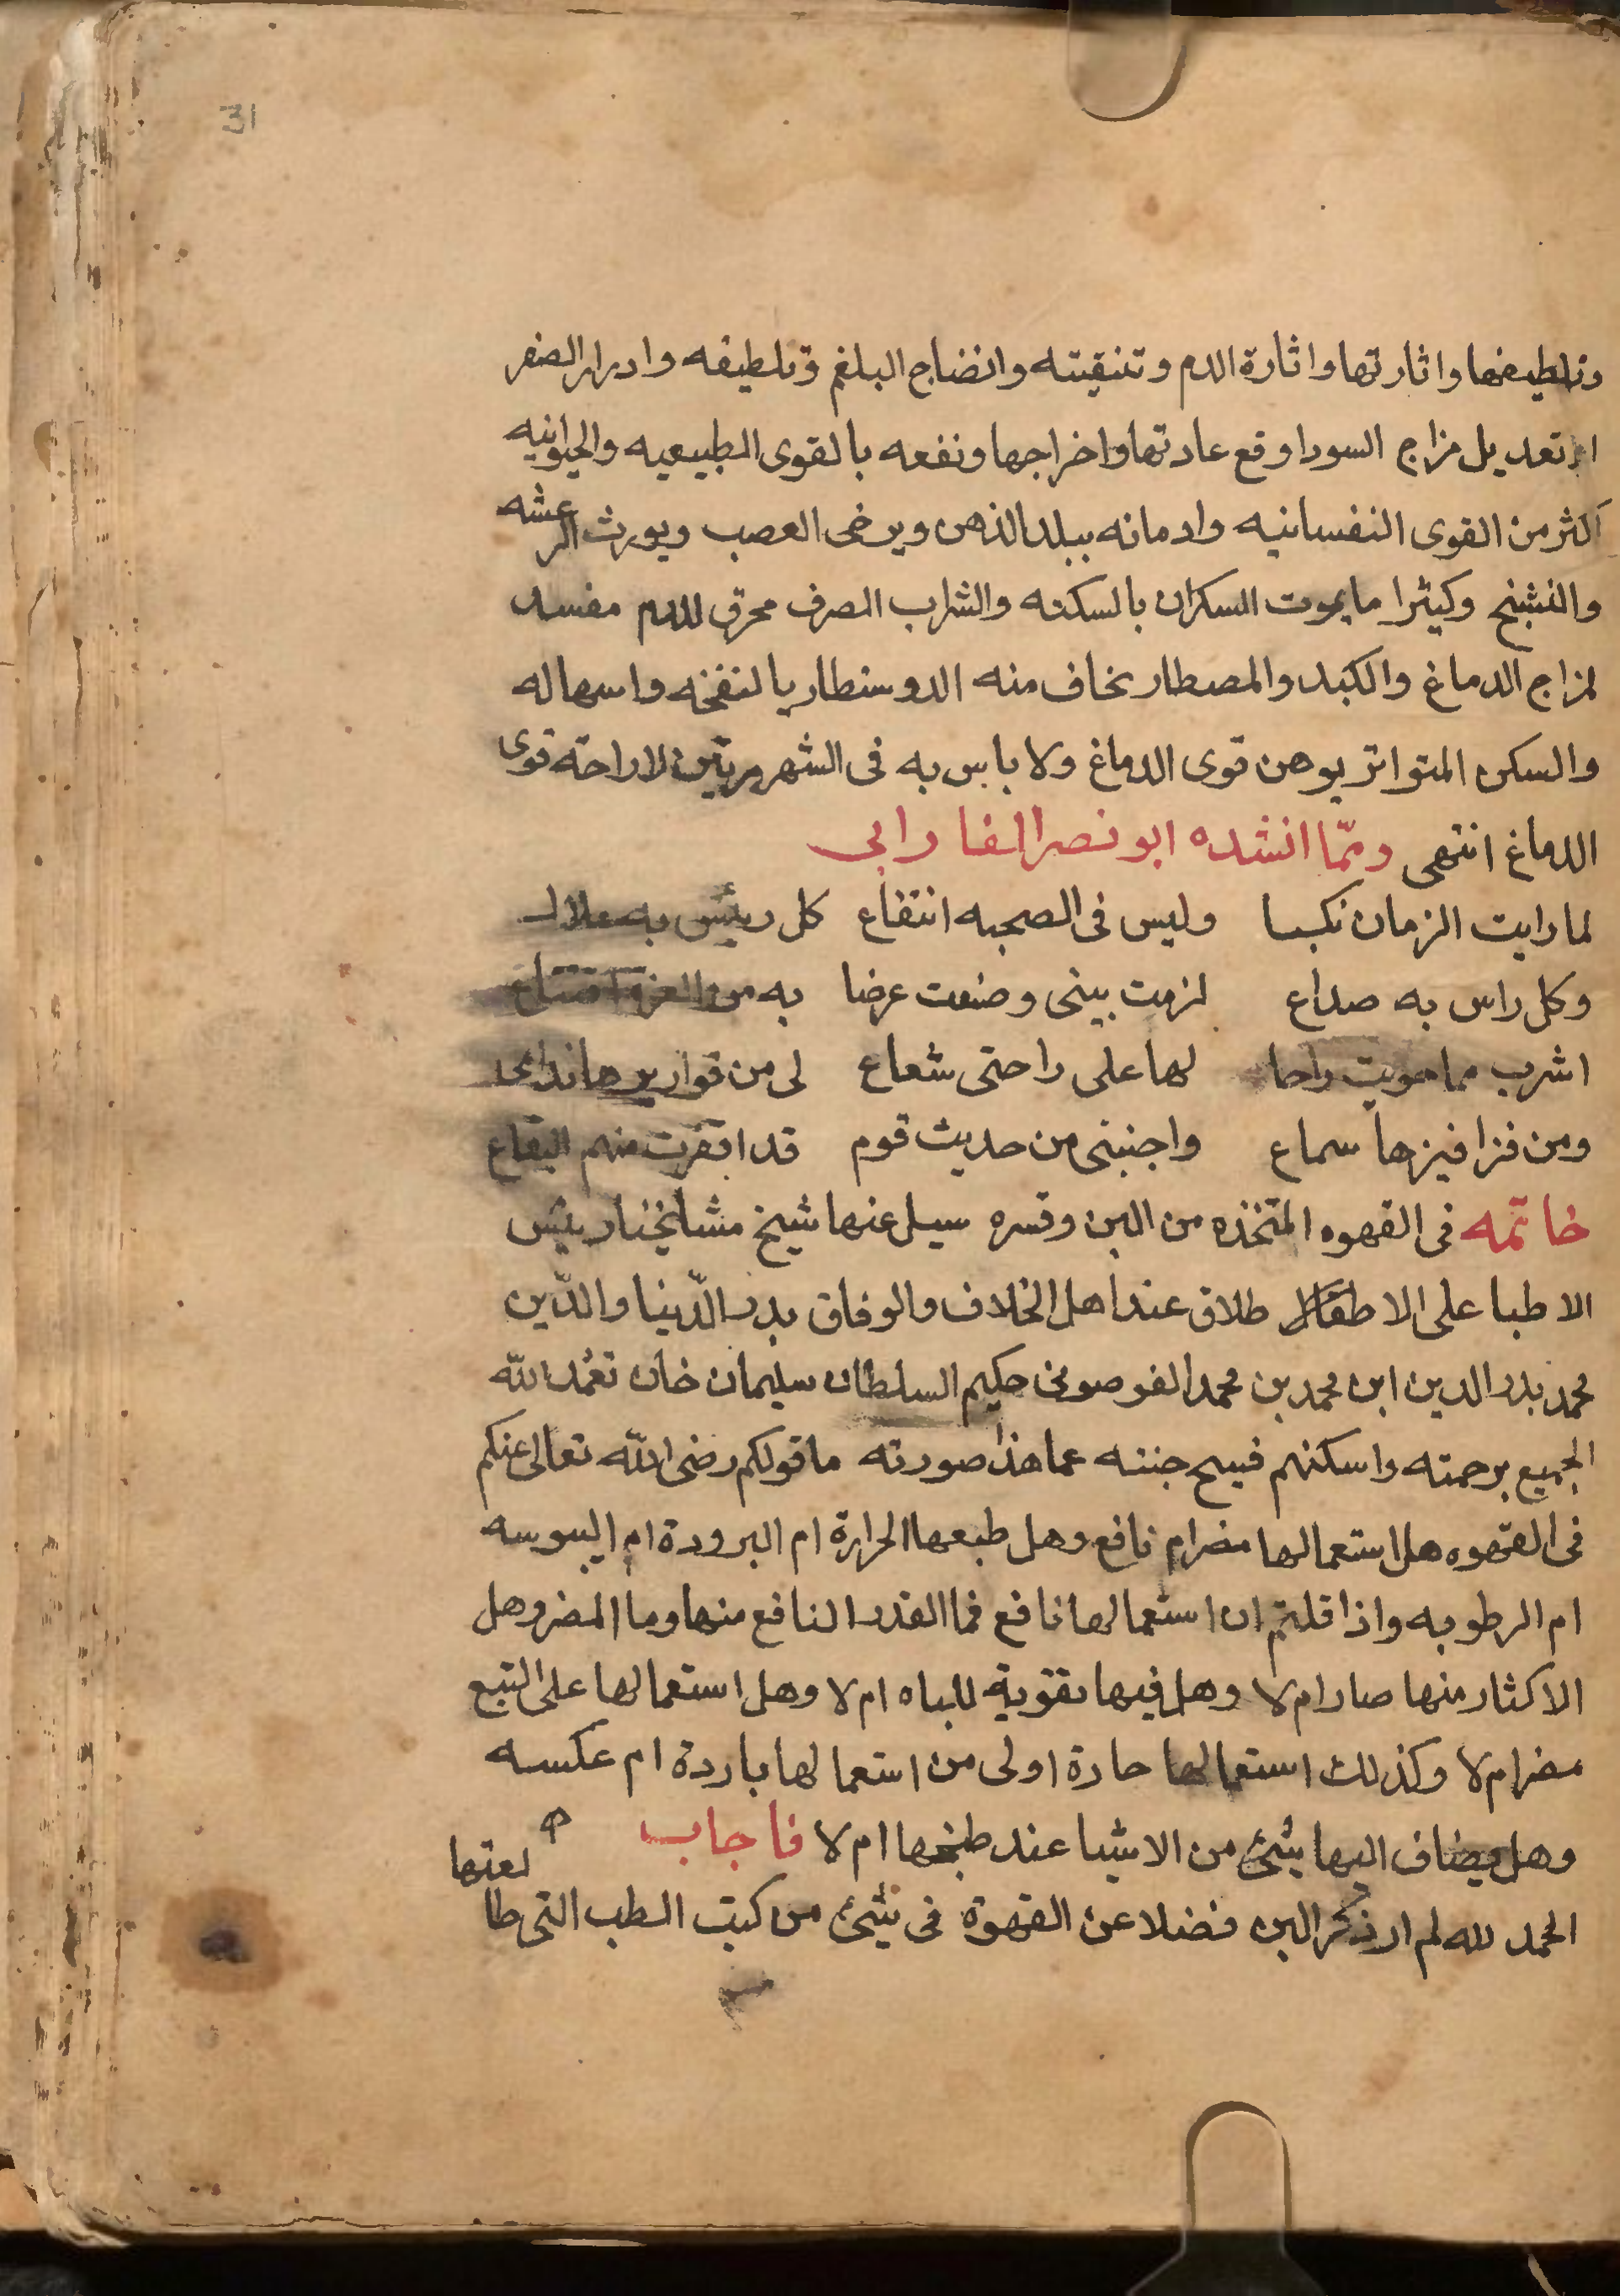 31
وتلطيفها واثارتها واثارة الدم وتنقيته وانضاج البلغم وتلطيفه وادرار الصفر
او تعديل مزاج السودا وقع عادتها واخراجها ونفعه بالقوى الطبيعيه والحيوانيه
اكثر من القوى النفسانيه وادمانه يبلد الذهن ويرخى العصب ويورث الرعشه
والتشنج وكثيرا ما يموت السكران بالسكته والشراب الصرف محرق للدم مفسد
لمزاج الدماغ والكبد والمصطار يخاف منه الدوسنطاريا لنفخه واسهاله
والسكر المتواتر يوهن قوى الدماغ ولا باس به فى الشهر مرتين لاراحة قوى
الدماغ انتهى ومّما انشده ابو نصر الفارابى
لما رايت الزمان نكسا وليس فى الصحبه انتفاع كل رئيس به ملال
وكل راس به صداع لزمت بيتى وصنعت عرضا به من العزة اقتناع
اشرب مما حويت راحا لها على راحتى شعاع لى من قواريرها ندامى
ومن قراقيرها سماع واجتنى من حديث قوم قد اقفرت منهم البقاع
خاتمه فى القهوه المتخذه من البن وقسره سيل عنها شيخ مشايخنا رييس
الاطبا على الاطلاق عند اهل الخلاف والوفاق بدر الدّنيا والدّين
محمد بدر الدين ابن محمد بن محمد القوصونى حكيم السلطان سليمان خان تغمد الله
الجميع برحمته واسكنهم فسيح جنته عما هذا صورته ما قولكم رضى الله تعالى عنكم
فى القهوه هل استعمالها مضر ام نافع وهل طبعها الحرارة ام البرودة ام اليبوسه
ام الرطوبه واذا قلتم ان استعمالها نافع فما القدر النافع منها وما المضر وهل
الاكثار منها ضار ام لا وهل فيها تقوية للباه ام لا وهل استعمالها على الشبع
مضر ام لا وكذلك استعمالها حارة اولى من استعمالها باردة ام عكسه
وهل يضاف اليها شئ من الاشيا عند طبخها ام لا فاجاب
الحمد لله لم ار ذكر البن فضلا عن القهوة فى شئ من كتب الطب التى طا
لعتها